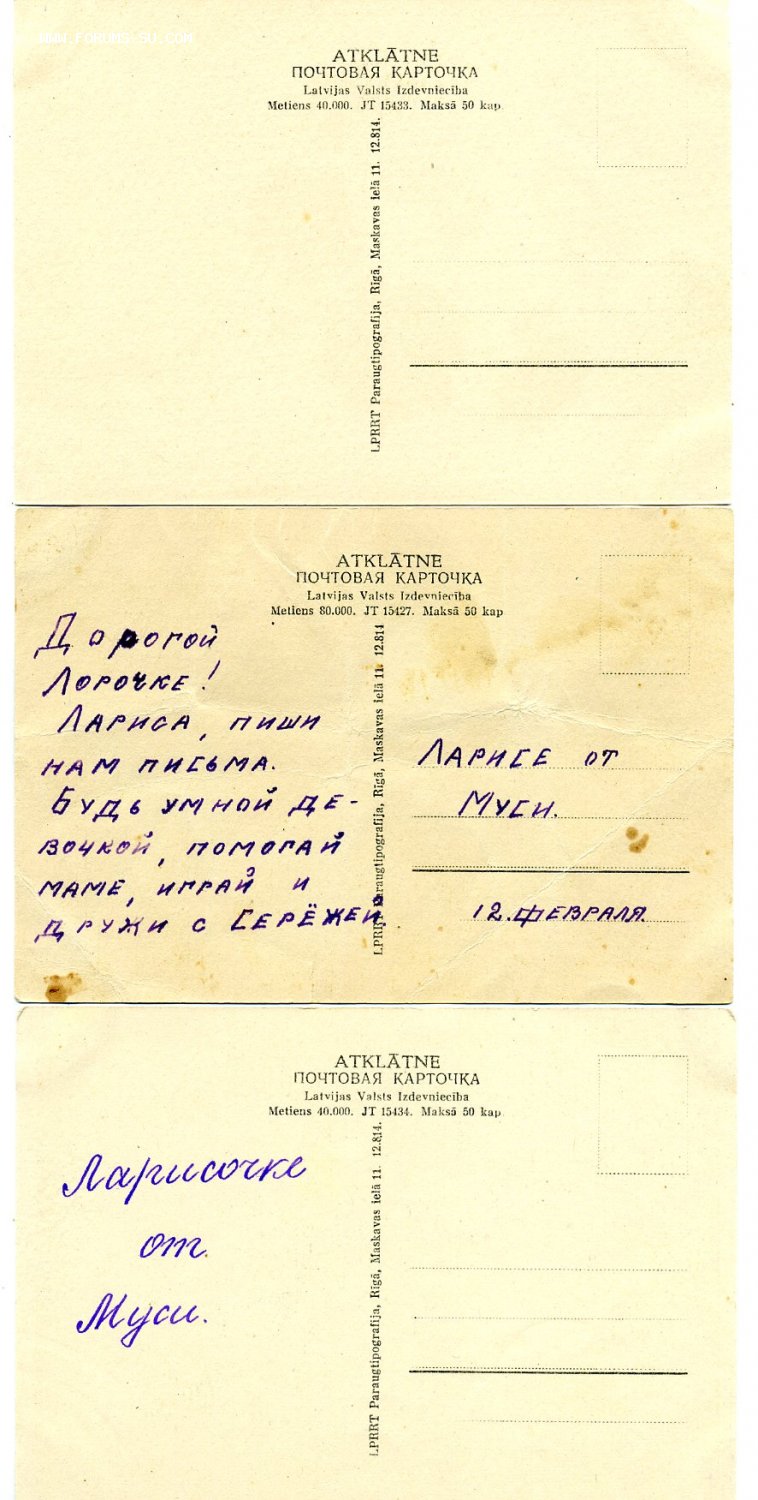 WWW.FORUMS-SU.COM
ATKLĀTNE
ПОЧТОВАЯ КАРТОЧКА
Latvijas Valsts Izdevniecība
Metiens 40.000. JT 15433. Maksā 50 kap
LPRRT Paraugtipografija, Rīgā, Maskavas ielā 11. 12.814.
ATKLĀTNE
ПОЧТОВАЯ КАРТОЧКА
Latvijas Valsts Izdevniecība
Metiens 80.000. JT 15427. Maksā 50 kap
Дорогой
Лорочке!
Лариса, пиши
нам письма.
Будь умной де-
вочкой, помогай
маме, играй и
дружи с Серёжей
LPRRT Paraugtipografija, Rīgā, Maskavas ielā 11. 12.814
Ларисе от
Муси.
12. февраля
ATKLĀTNE
ПОЧТОВАЯ КАРТОЧКА
Latvijas Valsts Izdevniecība
Metiens 40.000. JT 15434. Maksā 50 kap
Ларисочке
от
Муси.
LPRRT Paraugtipografija, Rīgā, Maskavas ielā 11. 12.814.